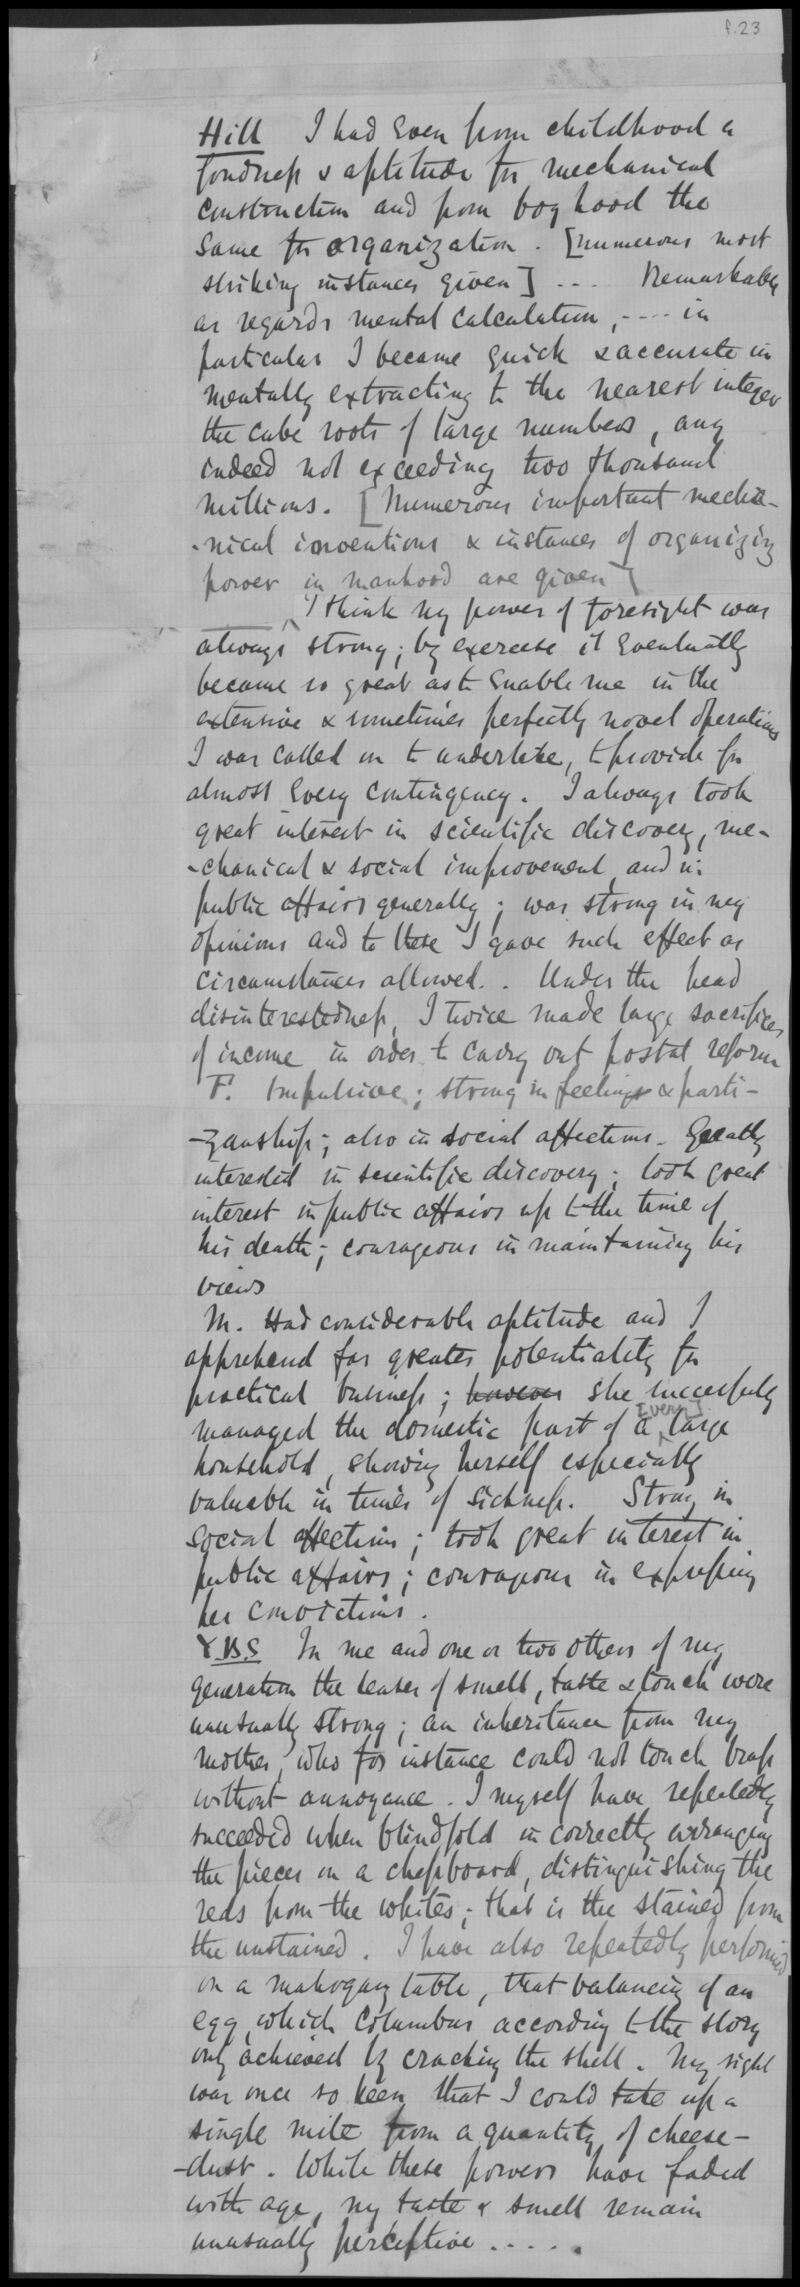 f.23
Hill I had even from childhood a
fondness & aptitude for mechanical
construction and from boyhood the
same for organization. [numerous most
striking instances given] .... Remarkable
as regards mental calculation, .... in
particular I became quick & accurate in
mentally extracting to the nearest integer
the cube roots of large numbers, any
indeed not exceeding two thousand
millions. [Numerous important mecha-
-nical inventions & instances of organizing
power in manhood are given]
I think my power of foresight was
always strong; by exercise it eventually
became so great as to enable me in the
extensive & sometimes perfectly novel operations
I was called on to undertake, to provide for
almost every contingency. I always took
great interest in scientific discovery, me-
-chanical & social improvement, and in
public affairs generally; was strong in my
opinions and to these I gave such effect as
circumstances allowed. . Under the head
disinterestedness, I twice made large sacrifices
of income in order to carry out postal reform
F. Impulsive; strong in feelings & parti-
-zanship; also in social affections. Greatly
interested in scientific discovery; took great
interest in public affairs up to the time of
his death; courageous in maintaining his
views
M. Had considerable aptitude and I
apprehend far greater potentiality for
practical business; however she successfully
managed the domestic part of a [very] large
household, showing herself especially
valuable in times of sickness. Strong in
social affections; took great interest in
public affairs; courageous in expressing
her convictions.
Y.B.S In me and one or two others of my
generation the senses of smell, taste & touch were
unusually strong; an inheritance from my
mother, who for instance could not touch brass
without annoyance. I myself have repeatedly
succeeded when blindfold in correctly arranging
the pieces on a chessboard, distinguishing the
reds from the whites; that is the stained from
the unstained. I have also repeatedly performed
on a mahogany table, that balancing of an
egg, which Columbus according to the story
only achieved by cracking the shell. My sight
was once so keen that I could take up a
single mite from a quantity of cheese-
-dust. While these powers have faded
with age, my taste & smell remain
unusually perceptive .....